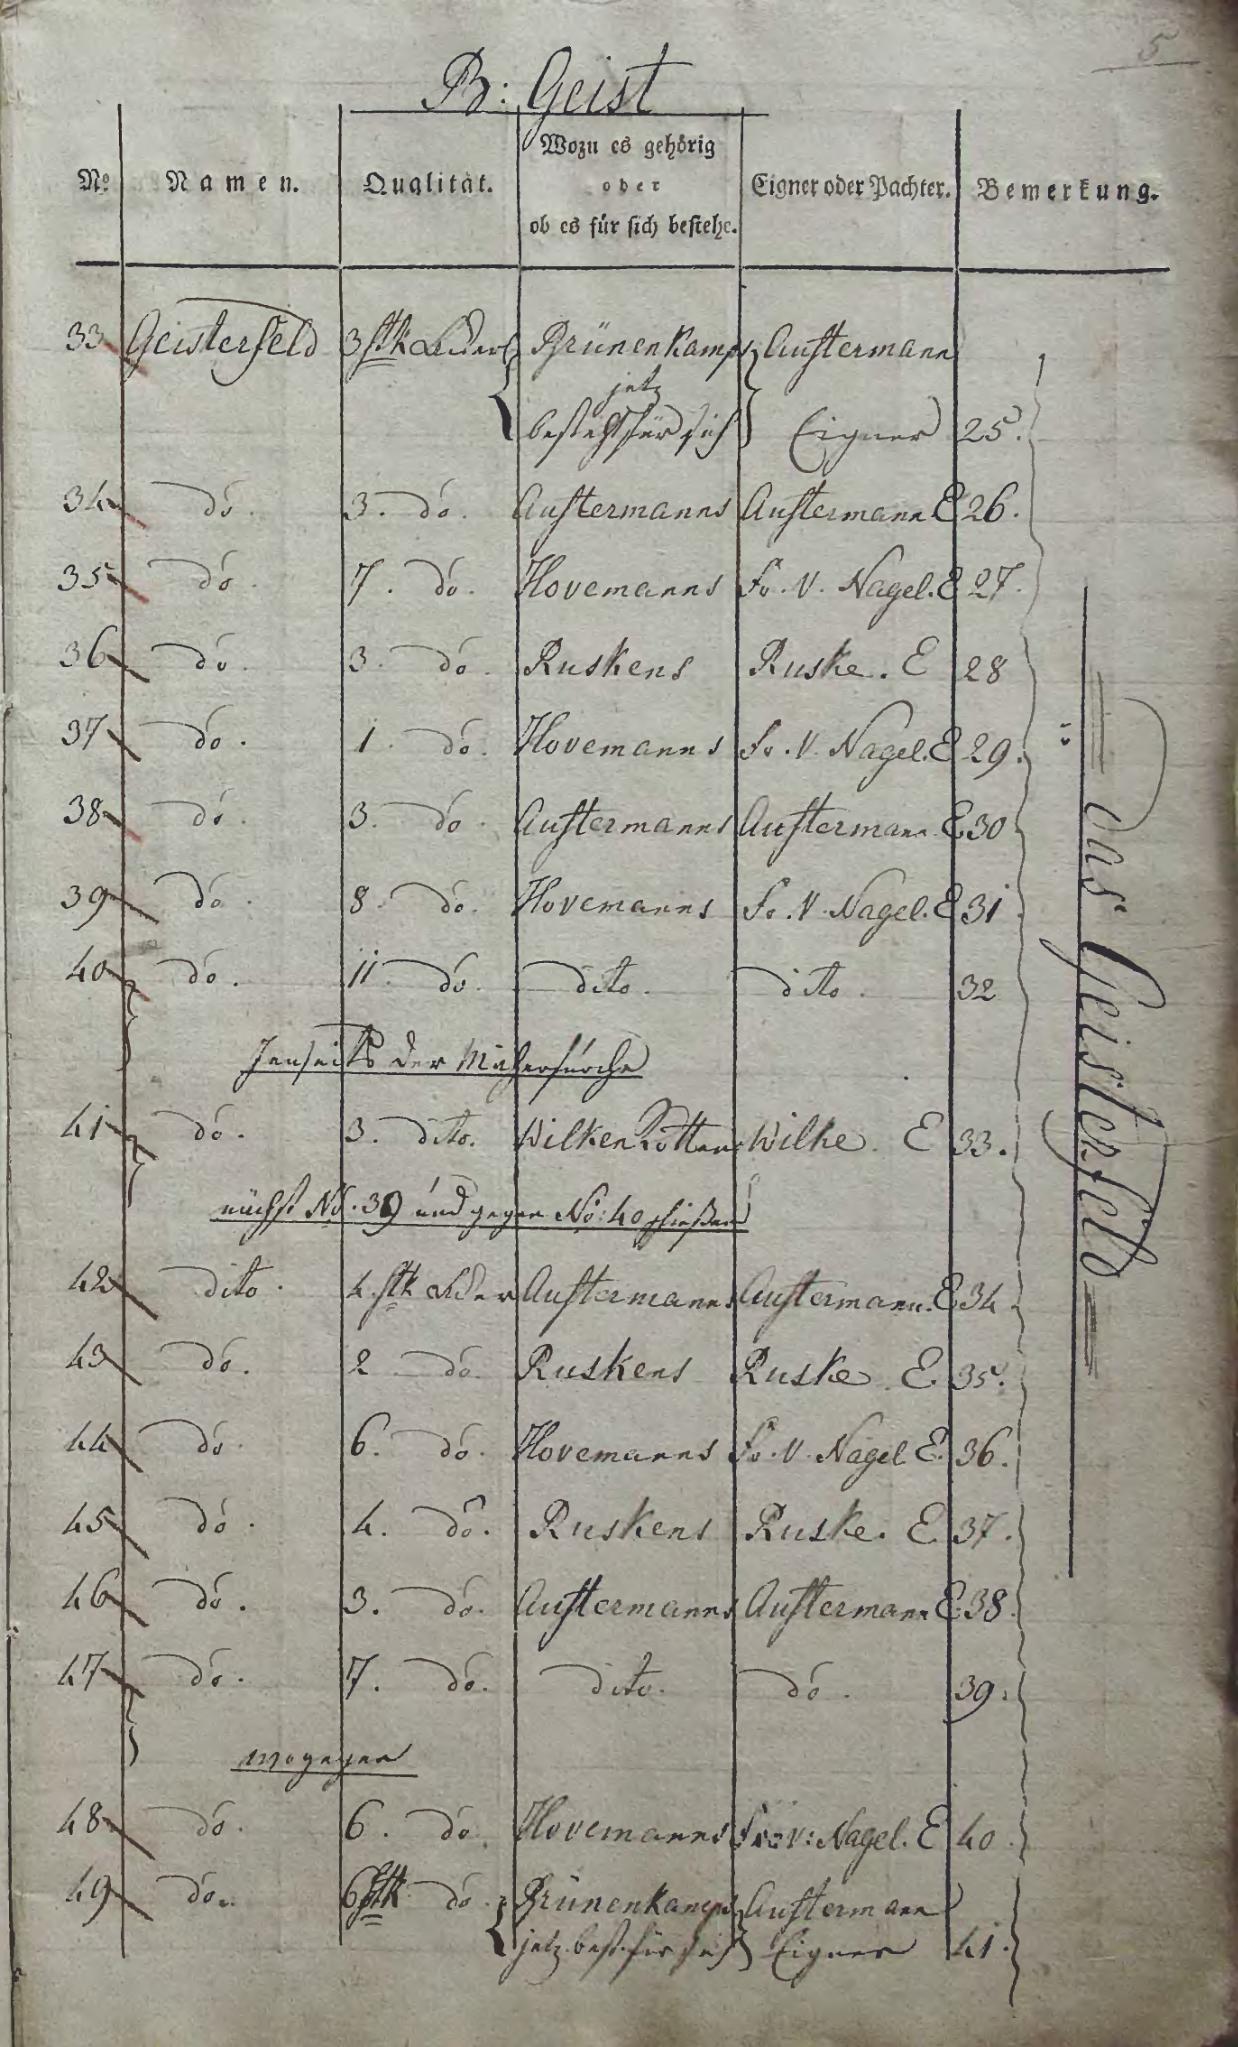 5
B: Geist
No Namen. Qualität. Wozu es gehörig oder ob es für sich bestehe. Eigner oder Pachter. Bemerkung.
33 Geisterfeld 3 stk Lder Brünenkamps Austermann
jetz
besteht für sich Eigner 25.
34 do. 3. do. Austermanns Austermann. E 26.
35 do. 7. do. Hovemanns Fr. V. Nagel. E 27.
36 do. 3. do. Ruskens Ruske. E 28
37 do. 1. do. Hovemanns Fr. V. Nagel. E 29.
38 do. 3. do. Austermanns Austermann. E 30
39 do. 8. do. Hovemanns Fr. V. Nagel. E 31.
40 do. 11. do. dito. dito. 32
Jenseits der
41 do. 3. dito. Wilken Kotten Wilke. E 33.
nächst No. 39 und gegen No: 40 schießend
42 dito. 4. stk Lder Austermanns Austermann. E 34.
43 do. 2 do. Ruskens Ruske. E. 35.
44 do. 6. do. Hovemanns Fr. V. Nagel E. 36.
45 do. 4. do. Ruskens Ruske. E. 37.
46 do. 3. do. Austermanns Austermann E. 38.
47 do. 7. do. dito. do. 39.
wogegen
48 do. 6. do. Hovemanns Fr: v: Nagel. E 40.
49 do. 6 stk do. Brünenkamps Austermann
jetz. best. für sich Eigner 41.
das Geisterfeld